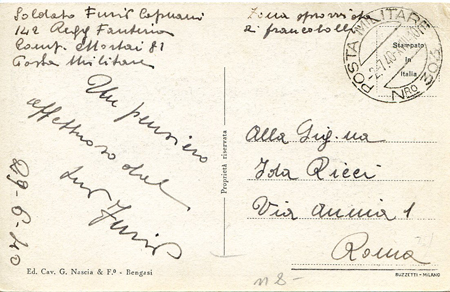 Soldato Furio Capuani
142 Regg Fanteria
Comp. Mortai 81
Posta Militare
Zona sprovvista
di francobolli
POSTA MILITARE
NRO 203
-2.7.40-XVIII
Stampato
in
Italia
Un pensiero
affettuoso dal
tuo Furio
29-6-40
Proprietà riservata
Alla Sig.na
Ida Ricci
Via Annia 1
Roma
Ed. Cav. G. Nascia & F.º - Bengasi
BUZZETTI - MILANO